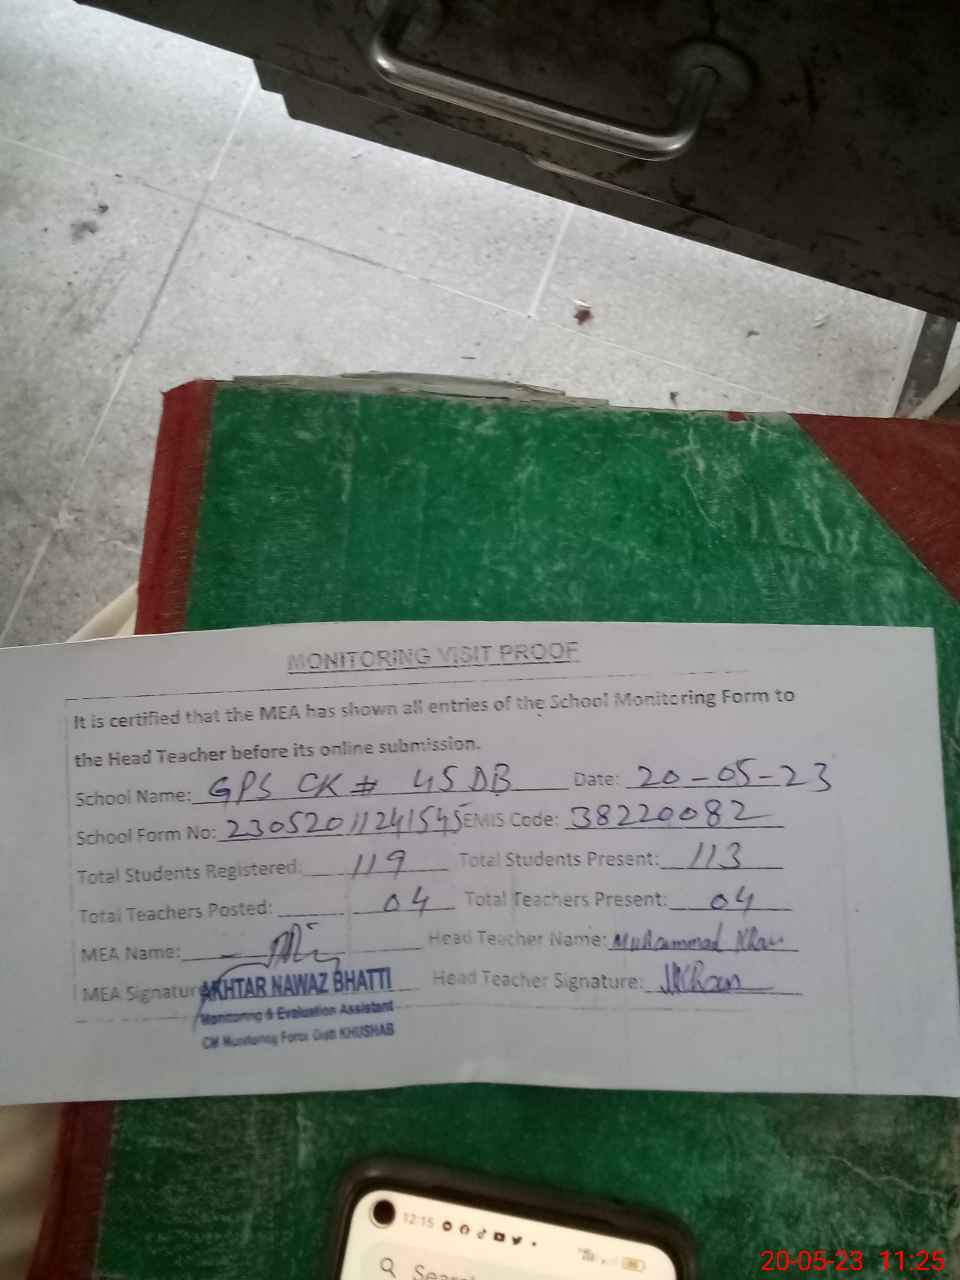 MONITORING VISIT PROOF
It is certified that the MEA has shown all entries of the School Monitoring Form to
the Head Teacher before its online submission.
School Name: GPS CK # 45 DB Date: 20-05-23
School Form No: 23052011241545 EMIS Code: 38220082
Total Students Registered: 119 Total Students Present: 113
Total Teachers Posted: 04 Total Teachers Present: 04
MEA Name: Head Teacher Name: Muhammad Khan
MEA Signature Head Teacher Signature: MKhan
AKHTAR NAWAZ BHATTI
Monitoring & Evaluation Assistant
CM Monitoring Force Distt KHUSHAB
12:15
Sear
20-05-23 11:25